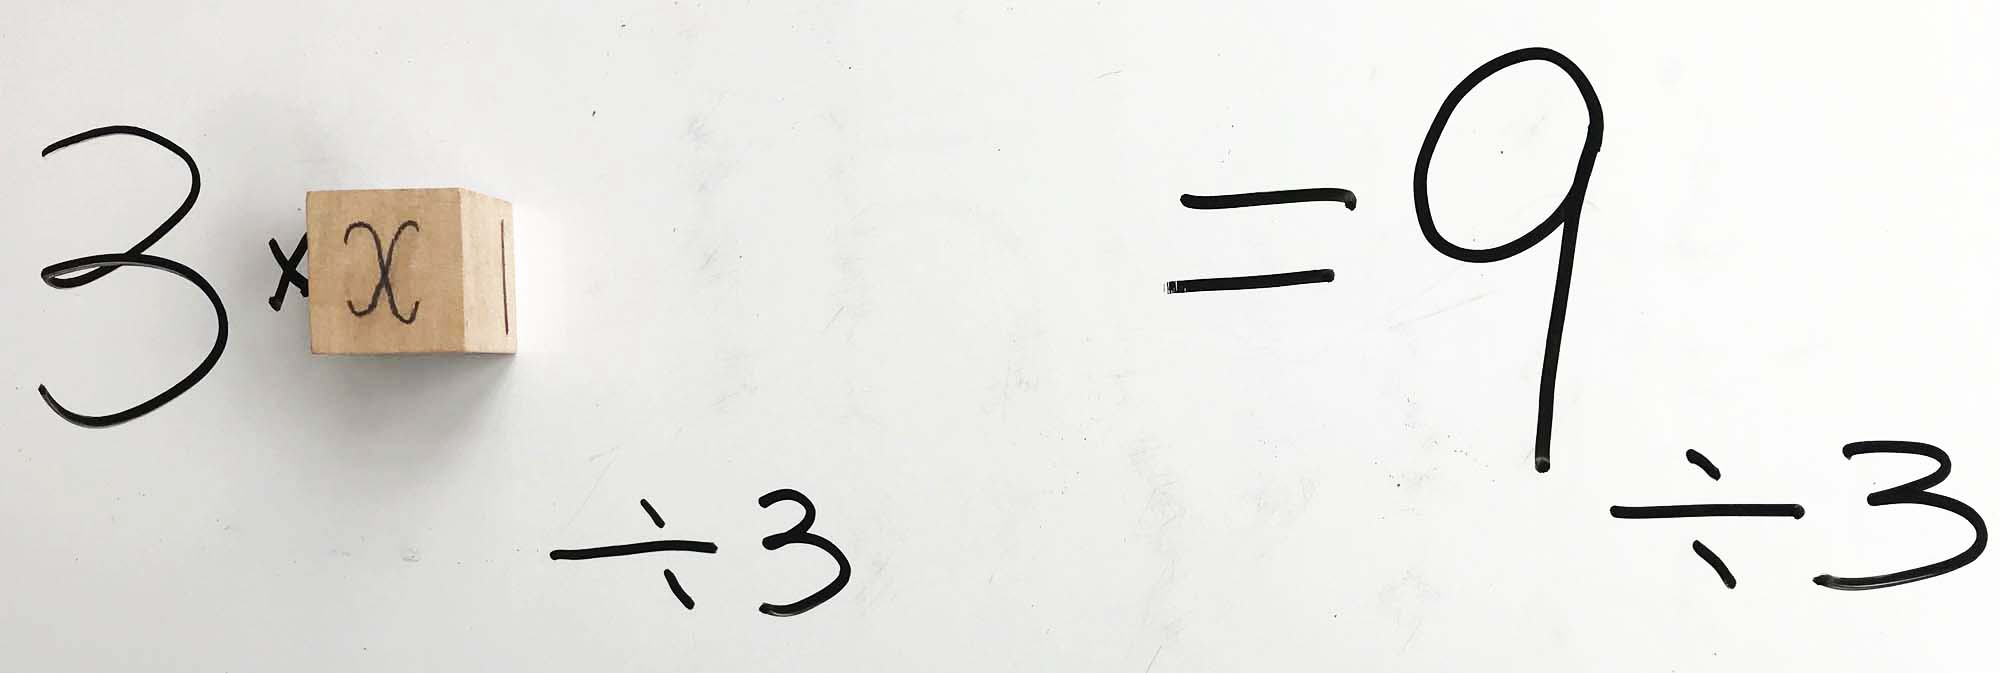 3 × x | = 9
÷ 3 ÷ 3